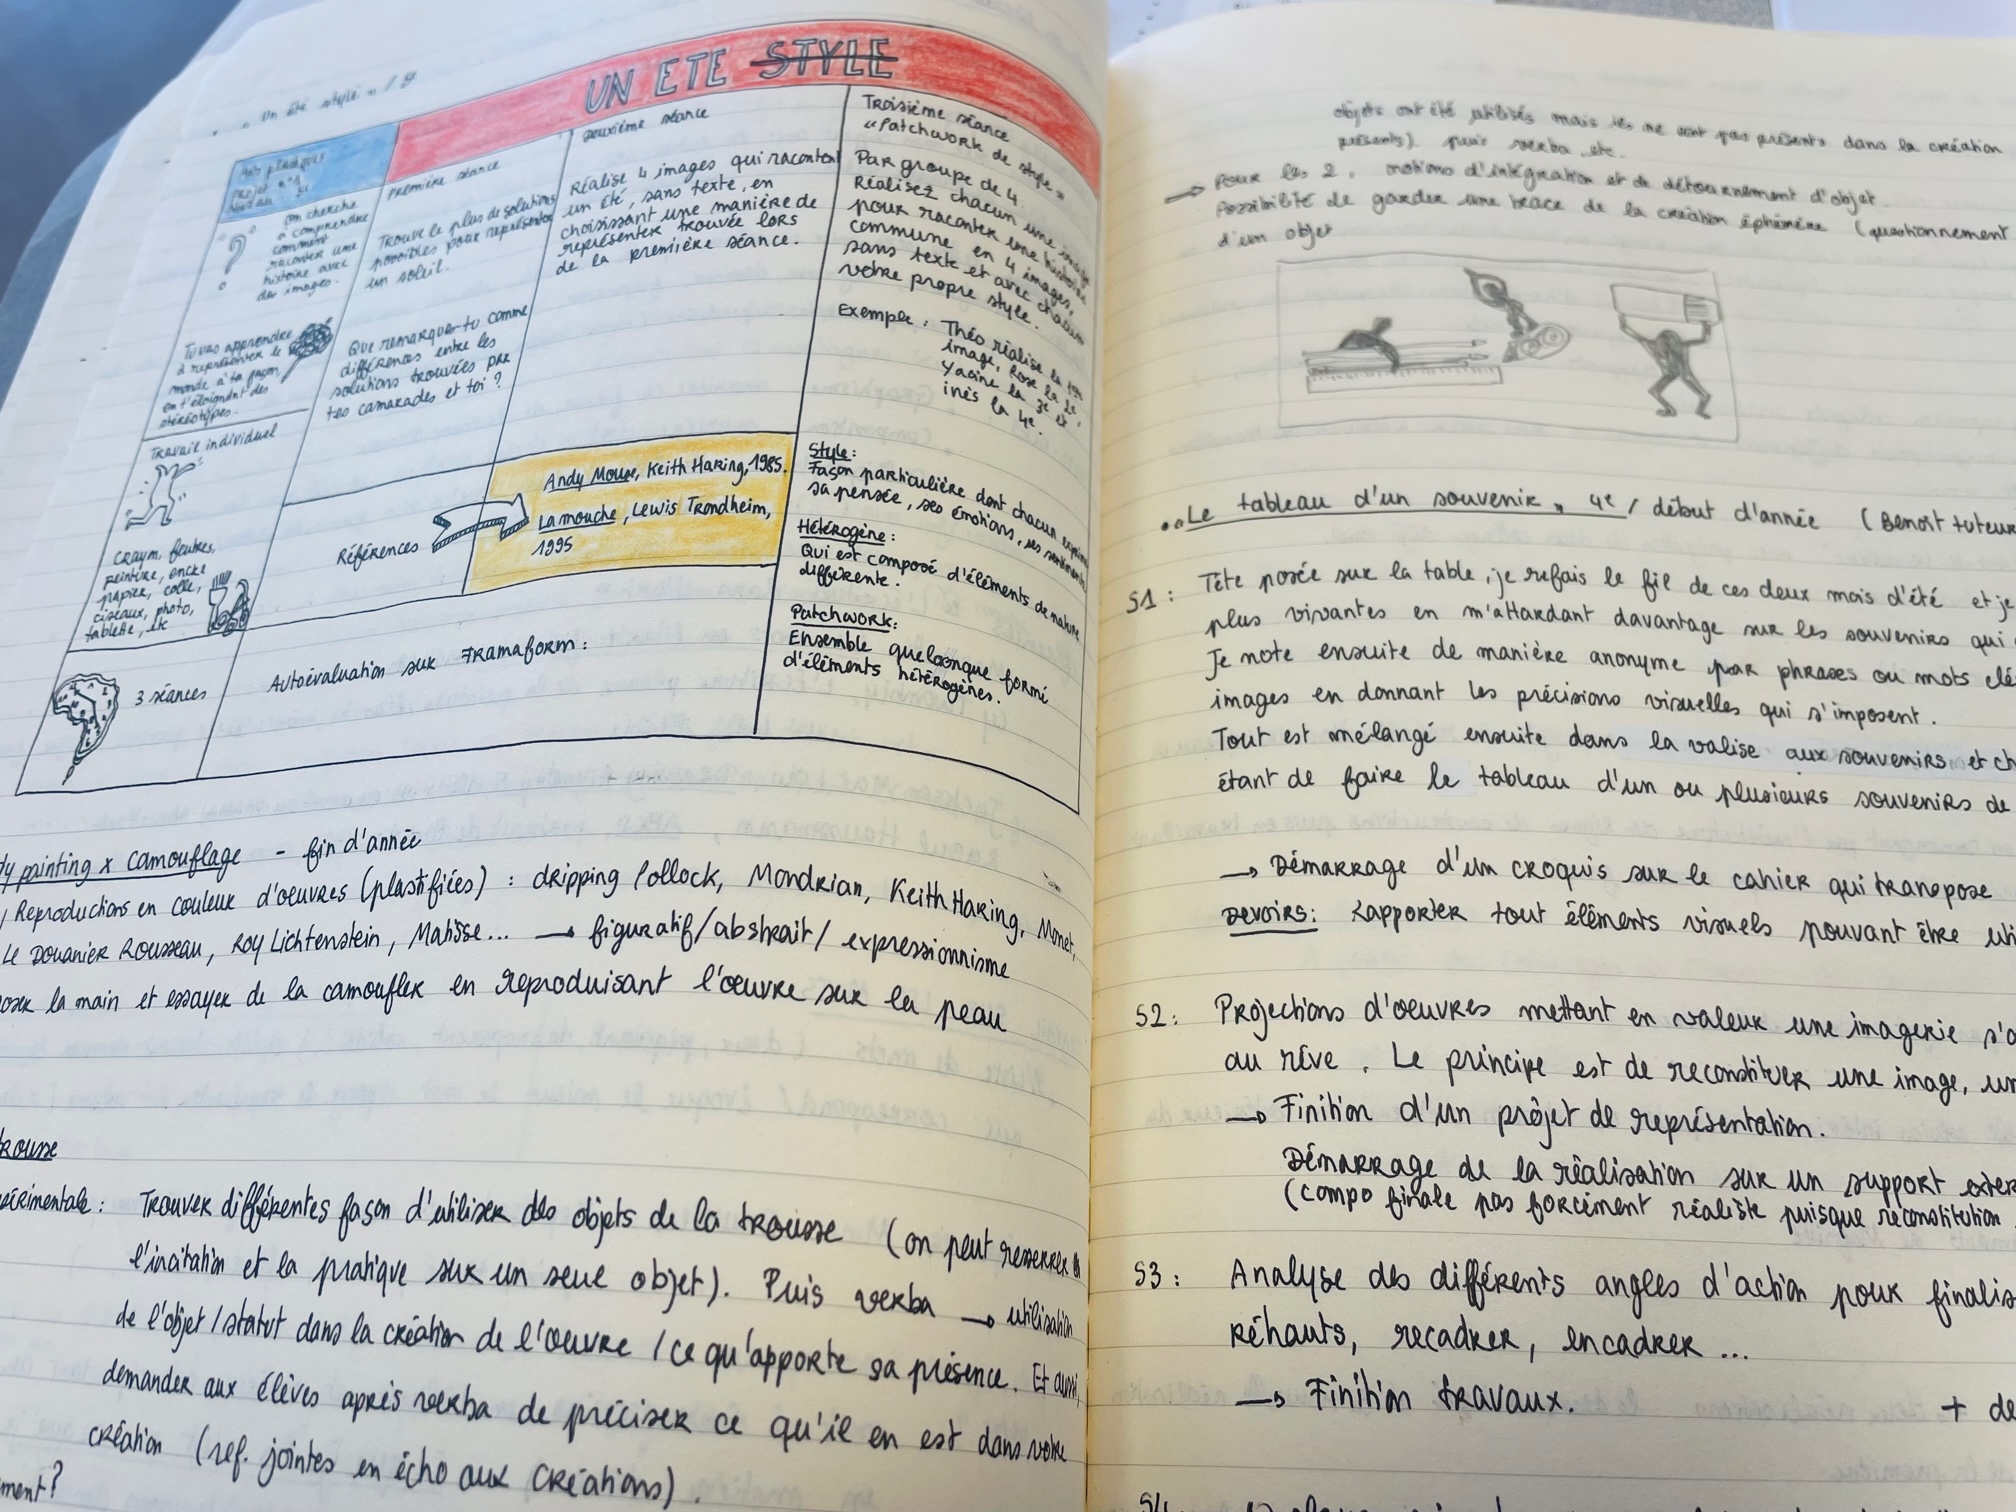 " Un été stylé " / 5e
UN ETE STYLE
Arts plastiques
Projet n°1
Niveau 5e
On cherche
à comprendre
comment
raconter une
histoire avec
des images.
?
Tu vas apprendre
à représenter le
monde à ta façon,
en t'éloignant des
stéréotypes.
Travail individuel
Crayon, feutres,
peinture, encre
papier, colle,
ciseaux, photo,
tablette, etc
3 séances
Première séance
Trouve le plus de solutions
possibles pour représenter
un soleil.
Que remarques-tu comme
différences entre les
solutions trouvées par
tes camarades et toi ?
Deuxième séance
Réalise 4 images qui racontent
un été, sans texte, en
choisissant une manière de
représenter trouvée lors
de la première séance.
Références
Andy Mouse, Keith Haring, 1985.
La mouche, Lewis Trondheim,
1995
Autoévaluation sur Framaform :
Troisième séance
"Patchwork de style"
Par groupe de 4.
Réalisez chacun une image
pour raconter une histoire
commune en 4 images,
sans texte et avec chacun
votre propre style.
Exemple : Théo réalise la 1ère
image, Rose la 2e,
Yacine la 3e et
Inès la 4e.
Style :
Façon particulière dont chacun exprime
sa pensée, ses émotions, ses sentiments.
Hétérogène :
Qui est composé d'éléments de nature
différente.
Patchwork :
Ensemble quelconque formé
d'éléments hétérogènes.
dy painting x camouflage - fin d'année
Reproductions en couleur d'oeuvres (plastifiées) : dripping Pollock, Mondrian, Keith Haring, Monet,
Le Douanier Rousseau, Roy Lichtenstein, Matisse... → figuratif/abstrait/expressionnisme
oser la main et essayer de la camoufler en reproduisant l'oeuvre sur la peau
trousse
périmentale : Trouver différentes façon d'utiliser des objets de la trousse (on peut resserrer
l'incitation et la pratique sur un seul objet). Puis verba → utilisation
de l'objet / statut dans la création de l'oeuvre / ce qu'apporte sa présence. Et aussi,
demander aux élèves après verba de préciser ce qu'il en est dans votre
création (ref. jointes en écho aux créations).
ment ?
objets ont été utilisés mais ils ne sont pas présents dans la création
présents) puis verba etc.
→ Pour les 2 : notions d'intégration et de détournement d'objet.
Possibilité de garder une trace de la création éphémère (questionnement
d'un objet
"Le tableau d'un souvenir" 4e / début d'année (Benoît tuteur
S1 : Tête posée sur la table, je refais le fil de ces deux mois d'été et je
plus vivantes en m'attardant davantage sur les souvenirs qui
Je note ensuite de manière anonyme par phrases ou mots clé
images en donnant les précisions visuelles qui s'imposent.
Tout est mélangé ensuite dans la valise aux souvenirs et ch
étant de faire le tableau d'un ou plusieurs souvenirs de
→ Démarrage d'un croquis sur le cahier qui transpose
Devoirs : Rapporter tout éléments visuels pouvant être uti
S2 : Projections d'oeuvres mettant en valeur une imagerie s'a
au rêve. Le principe est de reconstituer une image, un
→ Finition d'un projet de représentation.
Démarrage de la réalisation sur un support exter
(compo finale pas forcément réaliste puisque reconstitution
S3 : Analyse des différents angles d'action pour finalis
réhauts, recadrer, encadrer ...
→ Finition travaux.
+ de
S4